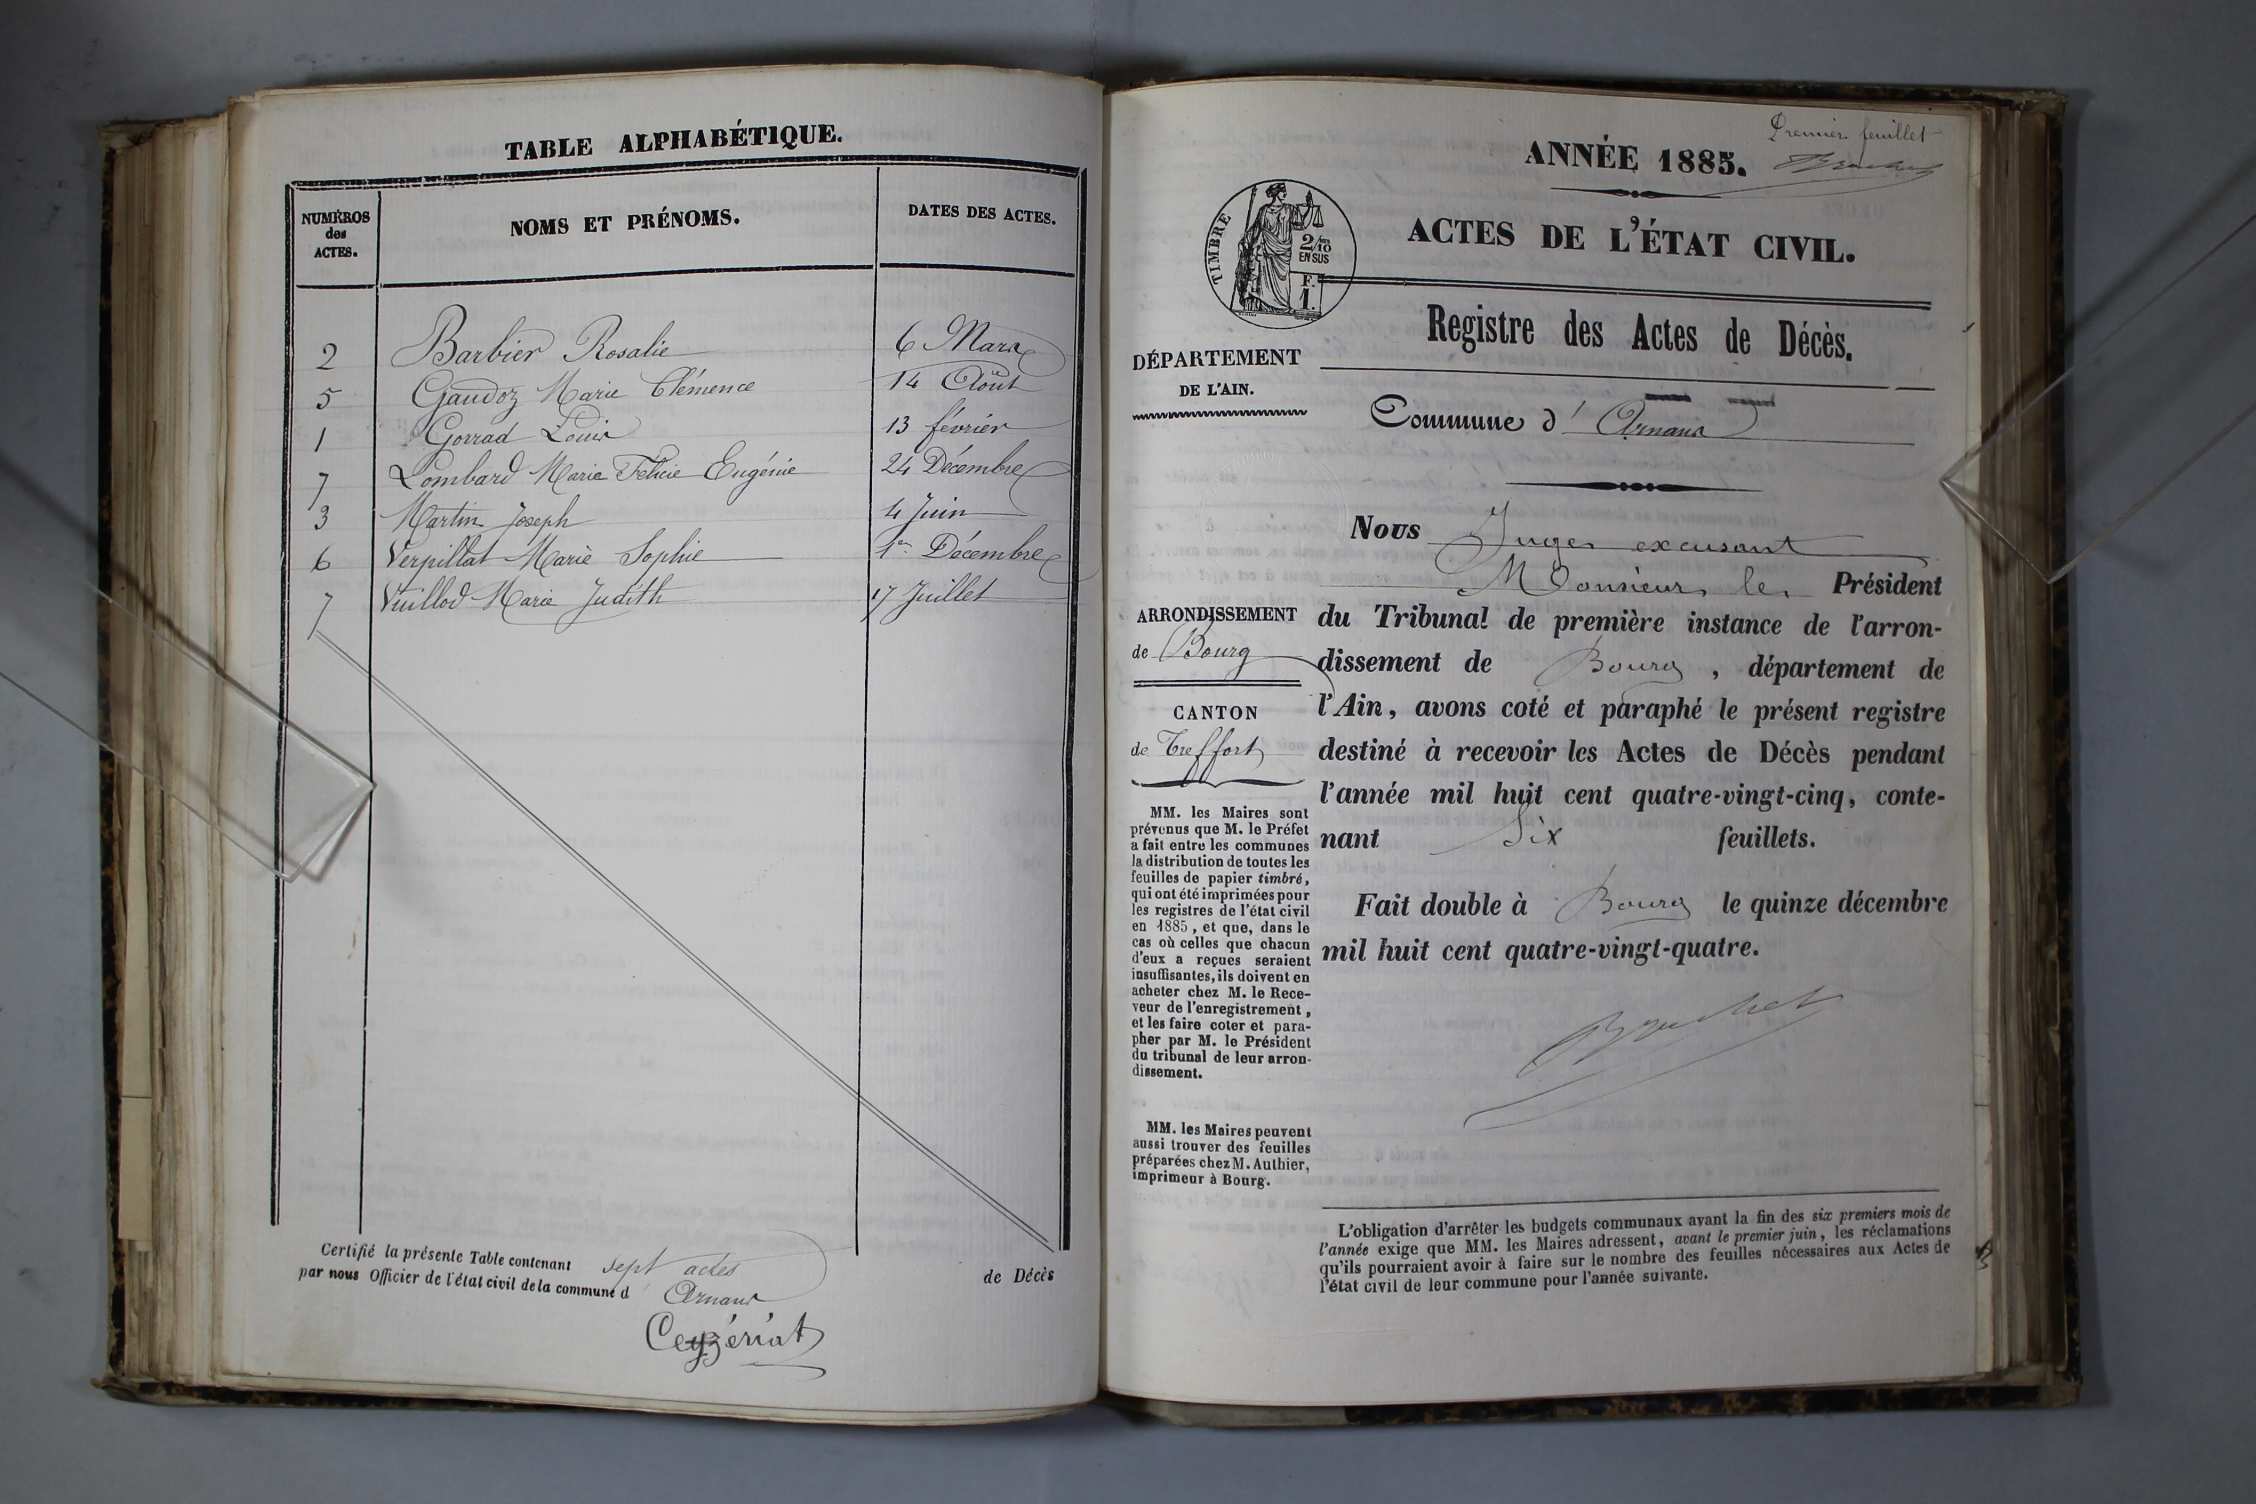 TABLE ALPHABÉTIQUE.
NUMÉROS des ACTES.
NOMS ET PRÉNOMS.
DATES DES ACTES.
2 Barbier Rosalie 6 Mars
5 Gaudoz Marie Clémence 14 Août
1 Gorrad Louis 13 février
7 Lombard Marie Félicie Eugénie 24 Décembre
3 Martin Joseph 4 Juin
6 Verpillat Marie Sophie 1er Décembre
7 Vuillod Marie Judith 17 Juillet
Certifié la présente Table contenant sept actes de Décès
par nous Officier de l'état civil de la commune d Arnans
Ceyzériat
Premier feuillet
ANNÉE 1885.
TIMBRE
2/10 EN SUS
F. 1.
ACTES DE L'ÉTAT CIVIL.
Registre des Actes de Décès.
DÉPARTEMENT
DE L'AIN.
Commune d' Arnans
Nous Juge excusant
Monsieur le Président
du Tribunal de première instance de l'arron-
dissement de Bourg, département de
l'Ain, avons coté et paraphé le présent registre
destiné à recevoir les Actes de Décès pendant
l'année mil huit cent quatre-vingt-cinq, conte-
nant Six feuillets.
Fait double à Bourg le quinze décembre
mil huit cent quatre-vingt-quatre.
ARRONDISSEMENT
de Bourg
CANTON
de Treffort
MM. les Maires sont
prévenus que M. le Préfet
a fait entre les communes
la distribution de toutes les
feuilles de papier timbré,
qui ont été imprimées pour
les registres de l'état civil
en 1885, et que, dans le
cas où celles que chacun
d'eux a reçues seraient
insuffisantes, ils doivent en
acheter chez M. le Rece-
veur de l'enregistrement,
et les faire coter et para-
pher par M. le Président
du tribunal de leur arron-
dissement.
MM. les Maires peuvent
aussi trouver des feuilles
préparées chez M. Authier,
imprimeur à Bourg.
L'obligation d'arrêter les budgets communaux avant la fin des six premiers mois de
l'année exige que MM. les Maires adressent, avant le premier juin, les réclamations
qu'ils pourraient avoir à faire sur le nombre des feuilles nécessaires aux Actes de
l'état civil de leur commune pour l'année suivante.